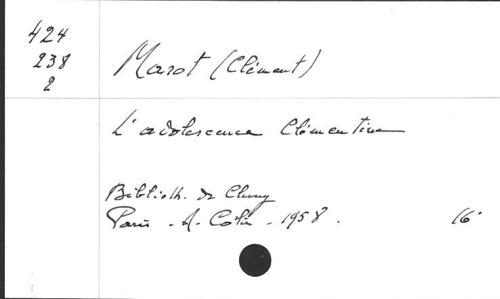 424
238
2
Marot (Clément)
L'adolescence Clémentine
Biblioth. de Cluny
Paris - A. Colin - 1958.
16°